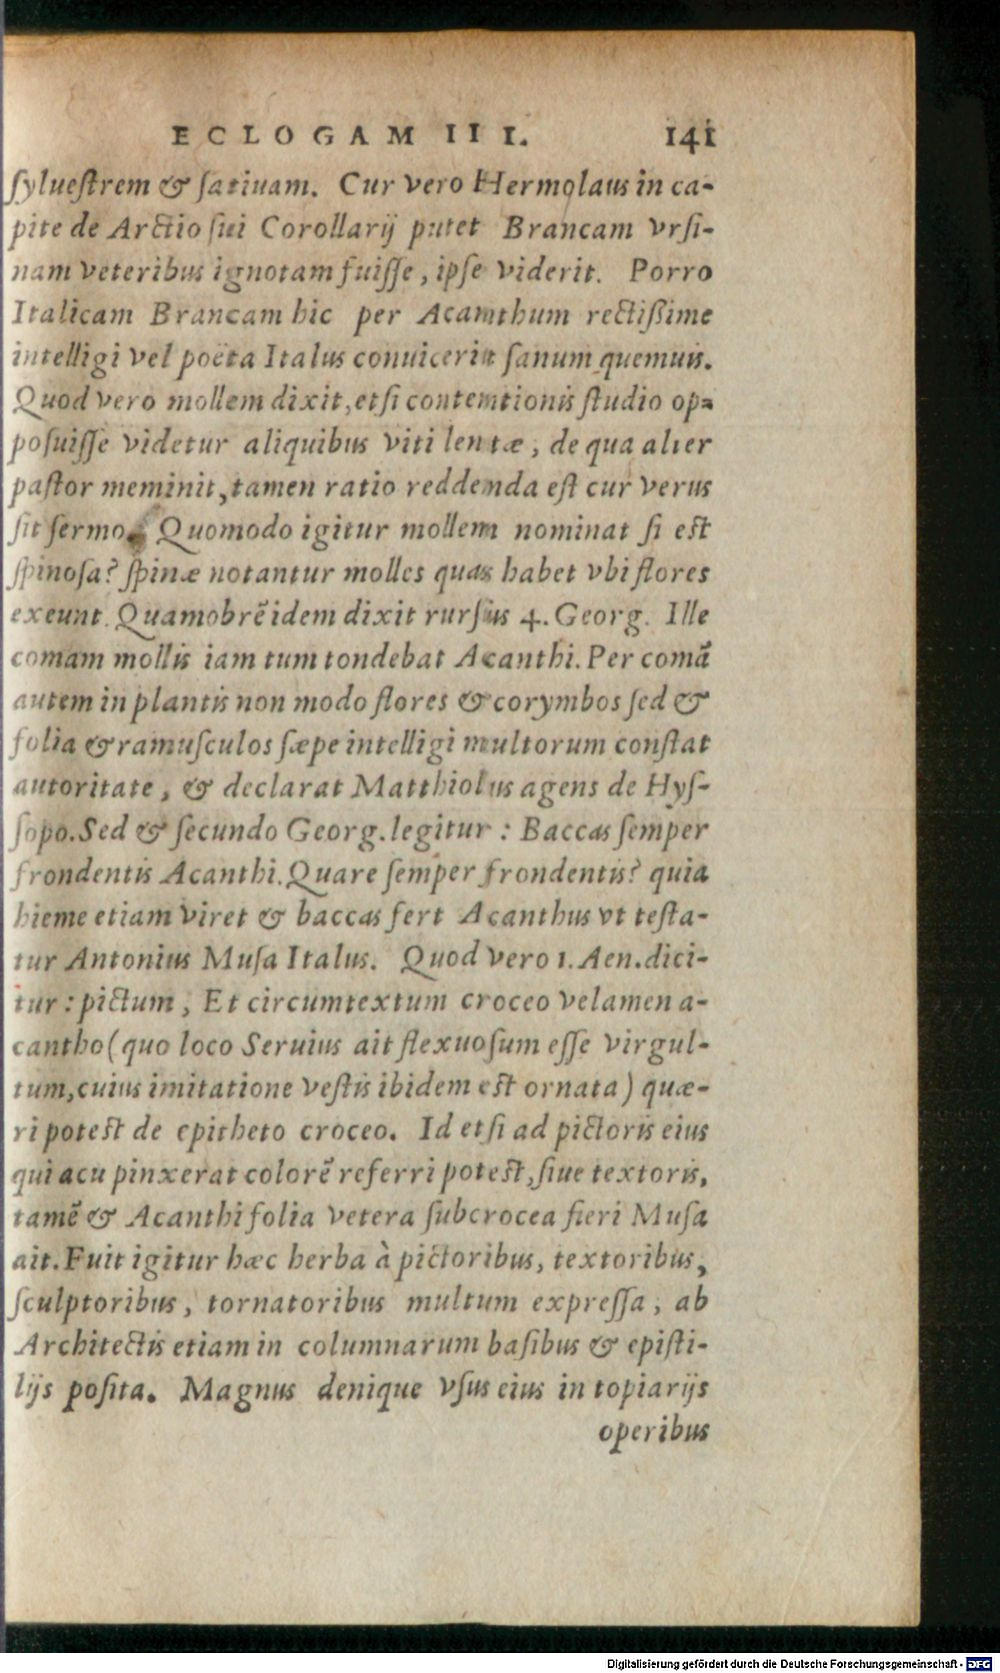 ECLOGAM III. 141
sylueſtrem & ſatiuam. Cur vero Hermolaus in ca-
pite de Arctio ſui Corollarij putet Brancam vrſi-
nam veteribus ignotam fuiſſe, ipſe viderit. Porro
Italicam Brancam hic per Acanthum rectißime
intelligi vel poëta Italus conuicerit ſanum quemuis.
Quod vero mollem dixit, etſi contentionis ſtudio op-
poſuiſſe videtur aliquibus viti lentæ, de qua alter
paſtor meminit, tamen ratio reddenda eſt cur verus
ſit ſermo. Quomodo igitur mollem nominat ſi eſt
ſpinoſa? ſpinæ notantur molles quas habet vbi flores
exeunt. Quamobrē idem dixit rurſus 4. Georg. Ille
comam mollis iam tum tondebat Acanthi. Per comā
autem in plantis non modo flores & corymbos ſed &
folia & ramuſculos ſæpe intelligi multorum conſtat
autoritate, & declarat Matthiolus agens de Hyſ-
ſopo. Sed & ſecundo Georg. legitur: Baccas ſemper
frondentis Acanthi. Quare ſemper frondentis? quia
hieme etiam viret & baccas fert Acanthus vt teſta-
tur Antonius Muſa Italus. Quod vero 1. Aen. dici-
tur: pictum, Et circumtextum croceo velamen a-
cantho (quo loco Seruius ait flexuoſum eſſe virgul-
tum, cuius imitatione veſtis ibidem eſt ornata) quæ-
ri poteſt de epitheto croceo. Id etſi ad pictoris eius
qui acu pinxerat colorē referri poteſt, ſiue textoris,
tamē & Acanthi folia vetera ſubcrocea fieri Muſa
ait. Fuit igitur hæc herba à pictoribus, textoribus,
ſculptoribus, tornatoribus multum expreſſa, ab
Architectis etiam in columnarum baſibus & epiſti-
lijs poſita. Magnus denique vſus eius in topiarijs
operibus
Digitalisierung gefördert durch die Deutsche Forschungsgemeinschaft - DFG